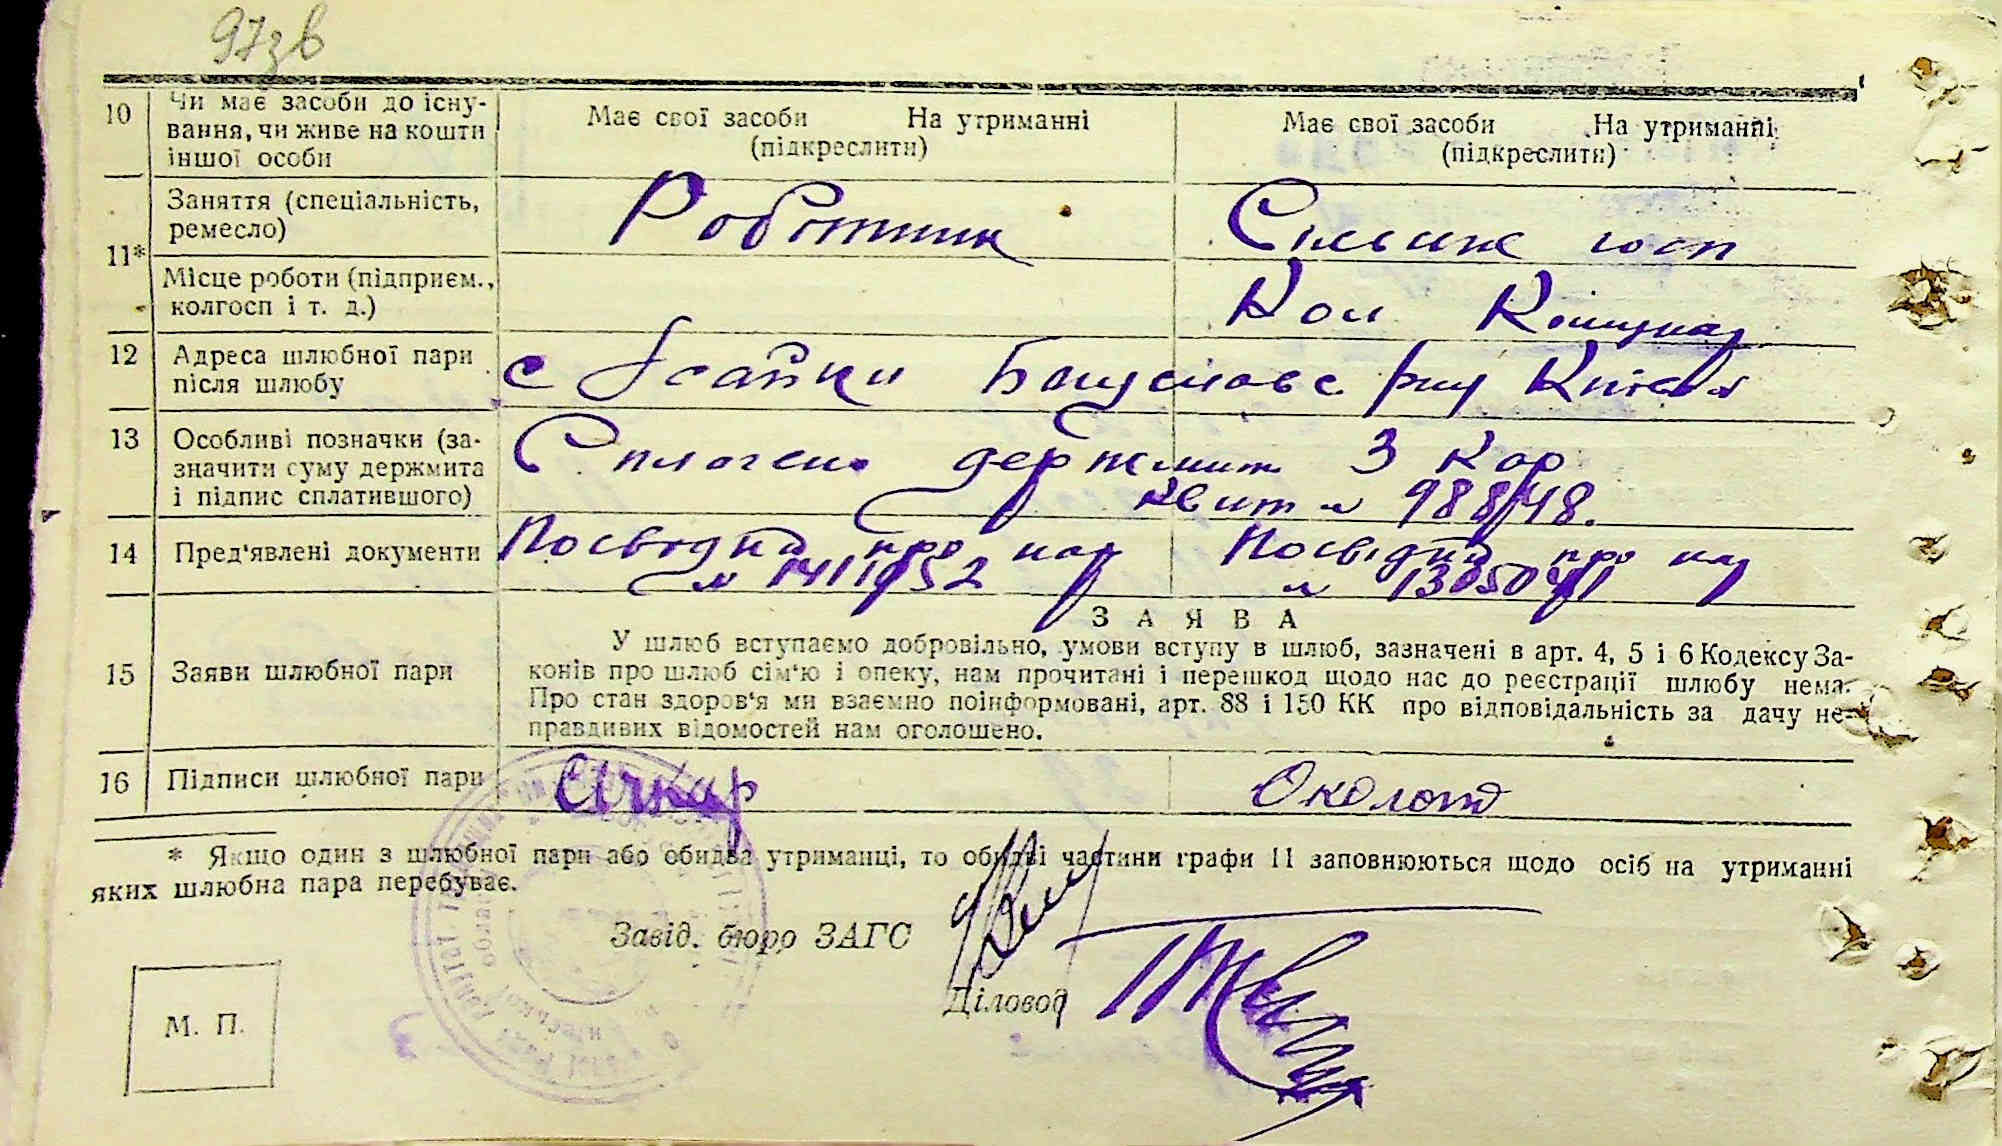 97зв
10 Чи має засоби до існу-
вання, чи живе на кошти
іншої особи
Має свої засоби На утриманні
(підкреслити)
Має свої засоби На утриманні
(підкреслити)
11*
Заняття (спеціальність,
ремесло)
Роботник
Сільське госп
Місце роботи (підприєм.,
колгосп і т. д.)
Кол Комунар
12 Адреса шлюбної пари
після шлюбу
с Ісайки Богуславс р-ну Київсь
13 Особливі позначки (за-
значити суму держмита
і підпис сплатившого)
Сплочено держмит 3 кар
квит № 988/48.
14 Пред'явлені документи
Посвідка про нар
№ 1411952
Посвідка про нар
№
15 Заяви шлюбної пари
ЗАЯВА
У шлюб вступаємо добровільно, умови вступу в шлюб, зазначені в арт. 4, 5 і 6 Кодексу За-
конів про шлюб сім'ю і опеку, нам прочитані і перешкод щодо нас до реєстрації шлюбу нема.
Про стан здоров'я ми взаємно поінформовані, арт. 88 і 150 КК про відповідальність за дачу не-
правдивих відомостей нам оголошено.
16 Підписи шлюбної пари
Січкар
Околот
* Якщо один з шлюбної пари або обидва утриманці, то обидві частини графи 11 заповнюються щодо осіб на утриманні
яких шлюбна пара перебуває.
Завід. бюро ЗАГС
Діловод
М. П.